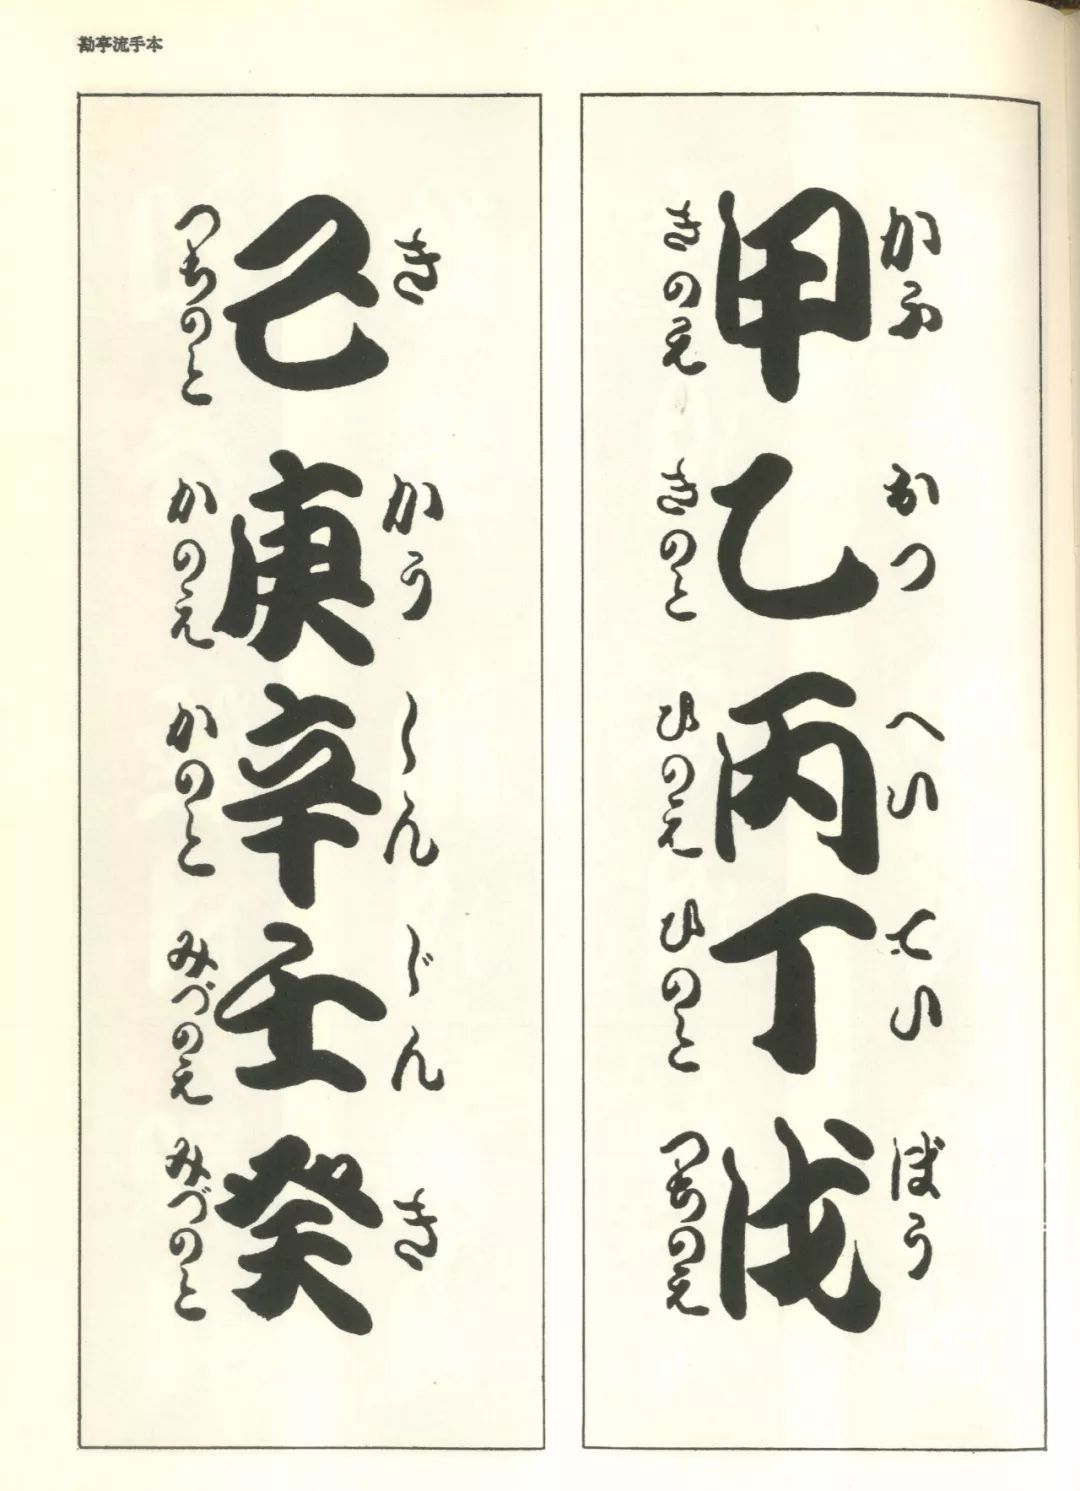 勘亭流手本
かふ
甲
きのえ
おつ
乙
きのと
へい
丙
ひのえ
てい
丁
ひのと
ぼう
戊
つちのえ
き
己
つちのと
かう
庚
かのえ
しん
辛
かのと
じん
壬
みづのえ
き
癸
みづのと